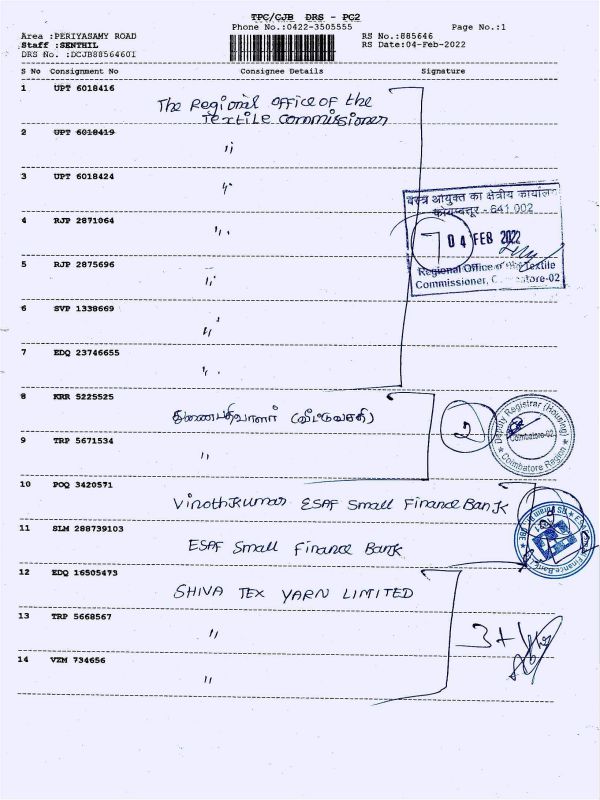 TPC/CJB DRS - PC2
Phone No.:0422-3505555
Page No.:1
Area :PERIYASAMY ROAD
RS No.:885646
Staff :SENTHIL
RS Date:04-Feb-2022
DRS No. :DCJB88564601
S No Consignment No Consignee Details Signature
1 UPT 6018416
The Regional office of the
Textile commissioner
2 UPT 6018419
"
3 UPT 6018424
"
4 RJP 2871064
"
5 RJP 2875696
"
6 SVP 1338669
"
7 EDQ 23746655
"
वस्त्र आयुक्त का क्षेत्रीय कार्यालय
कोयम्बत्तूर - 641 002
7 04 FEB 2022
Regional Office of the Textile
Commissioner, Coimbatore-02
8 KRR 5225525
துணைபதிவாளர் (வீட்டுவசதி)
2
Deputy Registrar (Housing)
Coimbatore-02
Coimbatore Region
9 TRP 5671534
"
10 POQ 3420571
Vinothkumar ESAF Small Finance Bank
11 SLM 288739103
ESAF Small Finance Bank
12 EDQ 16505473
SHIVA TEX YARN LIMITED
13 TRP 5668567
"
3+1
14 VZM 734656
"